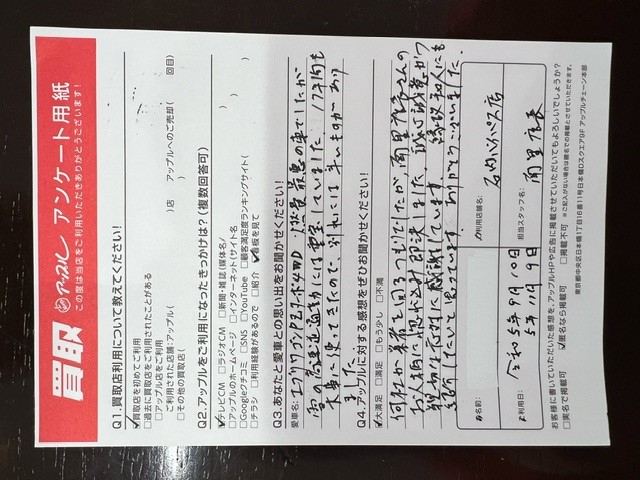 買取 アップル アンケート用紙
この度は当店をご利用いただきありがとうございます!
Q1.買取店利用について教えてください!
☑買取店を初めてご利用
□過去に買取店をご利用されたことがある
□アップル店をご利用
ご利用された店舗:アップル( )店 アップルへのご売却( 回目)
□その他の買取店( )
Q2.アップルをご利用になったきっかけは?(複数回答可)
☑テレビCM □ラジオCM □新聞・雑誌(媒体名/ )
□アップルのホームページ □インターネット(サイト名 )
□Googleクチコミ □SNS □YouTube □顧客満足度ランキングサイト( )
□チラシ □利用経験があるので □紹介 ☑看板を見て
Q3.あなたと愛車との思い出をお聞かせください!
愛車名:エブリイワゴンPZターボ4WD
雪の
通勤には重宝していました 12年間も
大事に
ました
Q4.アップルに対する感想をぜひお聞かせください!
☑大満足 □満足 □もう少し □不満
何社か業者を回るつもりでしたが雨里店長さんの
親切な応対に感謝しています。
紹介したいと思っています。ありがとうございました。
お名前:
ご利用店舗名: 石内バイパス店
ご利用日: 令和5年9月10日
5年11月9日
担当スタッフ名: 雨里店長
お客様に書いていただいた感想を、アップルHPや広告に掲載させていただいてもよろしいでしょうか?
□実名で掲載可 ☑匿名なら掲載可 □掲載不可 ※ご記入がない場合は匿名での掲載とさせていただきます。
東京都中央区日本橋1丁目16番11号日本橋Dスクエア9F アップルチェーン本部